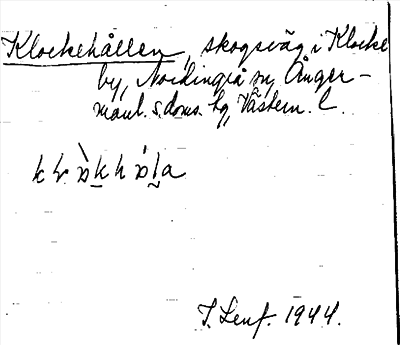 Klockehållen, skogsväg i Klocke
by, Nordingrå sn, Ånger-
manl. s. doms. hg, Västern. l.
T. Lenf. 1944.